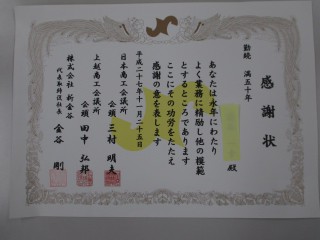 感謝状
勤続 満五十年
殿
あなたは永年にわたり
よく業務に精励し他の模範
とするところであります
ここにその功労をたたえ
感謝の意を表します
平成二十七年十一月二十五日
日本商工会議所
会頭 三村 明夫
上越商工会議所
会頭 田中 弘邦
株式会社 新金谷
代表取締役社長 金谷 剛